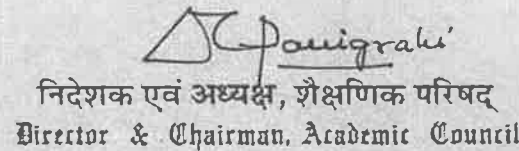 Panigrahi
निदेशक एवं अध्यक्ष, शैक्षणिक परिषद्
Director & Chairman, Academic Council